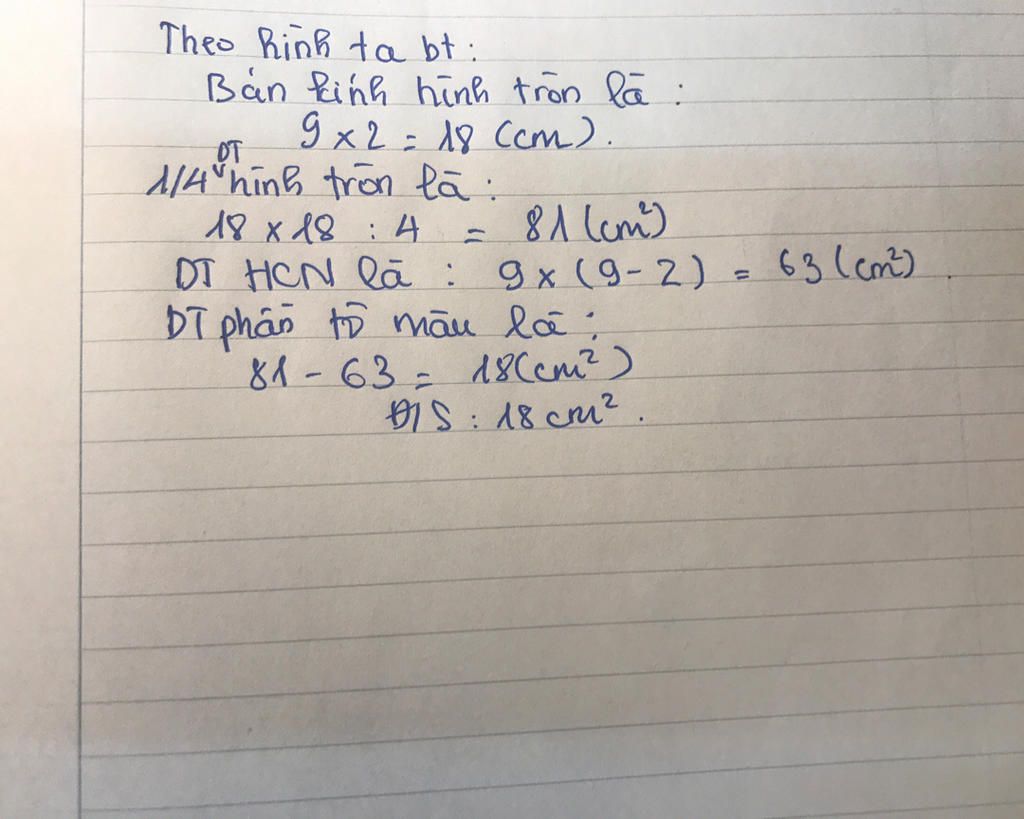 Theo hình ta bt:
Bán kính hình tròn là :
9 x 2 = 18 (cm).
DT
1/4 hình tròn là :
18 x 18 : 4 = 81 (cm²)
DT HCN là : 9 x (9 - 2) = 63 (cm²)
DT phần tô màu là :
81 - 63 = 18 (cm²)
Đ/S : 18 cm².